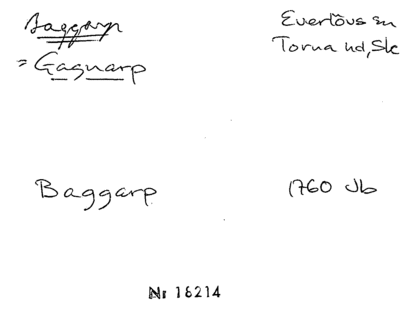 Baggarp
= Gagnarp
Everlövs sn
Torna hd, Sk
Baggarp
1760 Jb
Nr 16214